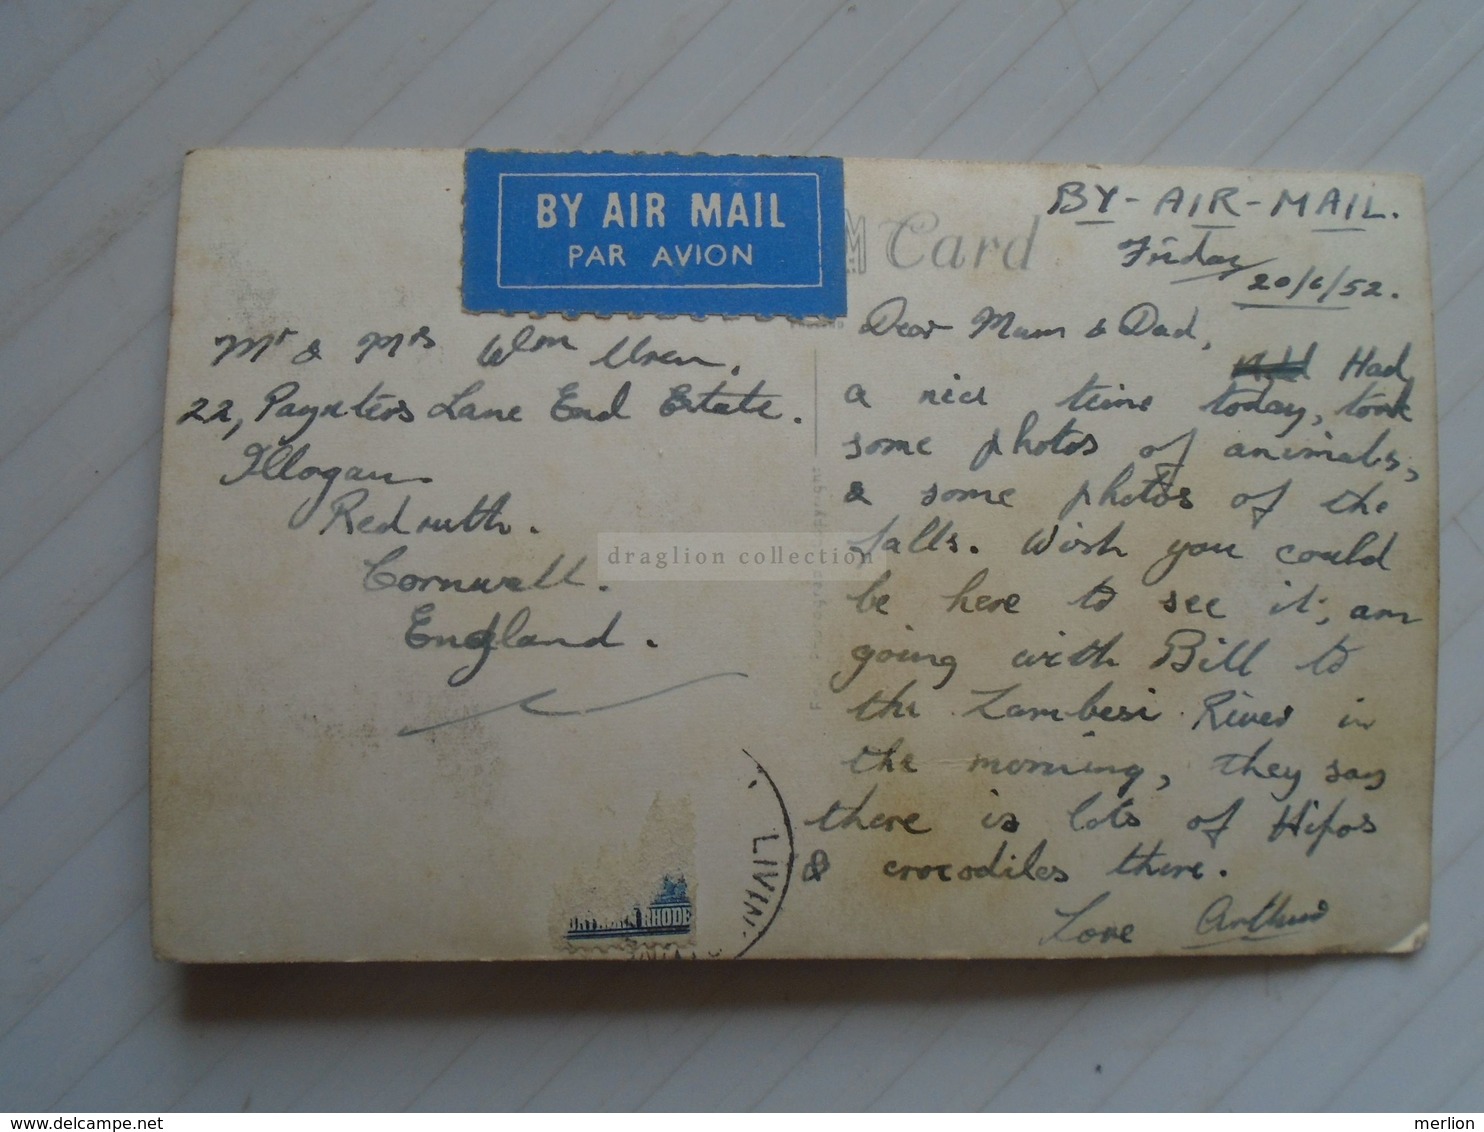 BY AIR MAIL
PAR AVION
Card
BY-AIR-MAIL.
Friday
20/6/52.
Mr & Mrs Wm Uren,
22, Paynters Lane End Estate.
Illogan
Redruth.
Cornwall.
England.
Dear Mum & Dad,
Had
a nice time today, took
some photos of animals,
& some photos of the
falls. Wish you could
be here to see it, am
going with Bill to
the Zambesi River in
the morning, they say
there is lots of Hipos
& crocodiles there.
Love Arthur
LIVIN
RHODE
draglion collection
delcampe.net
merlion